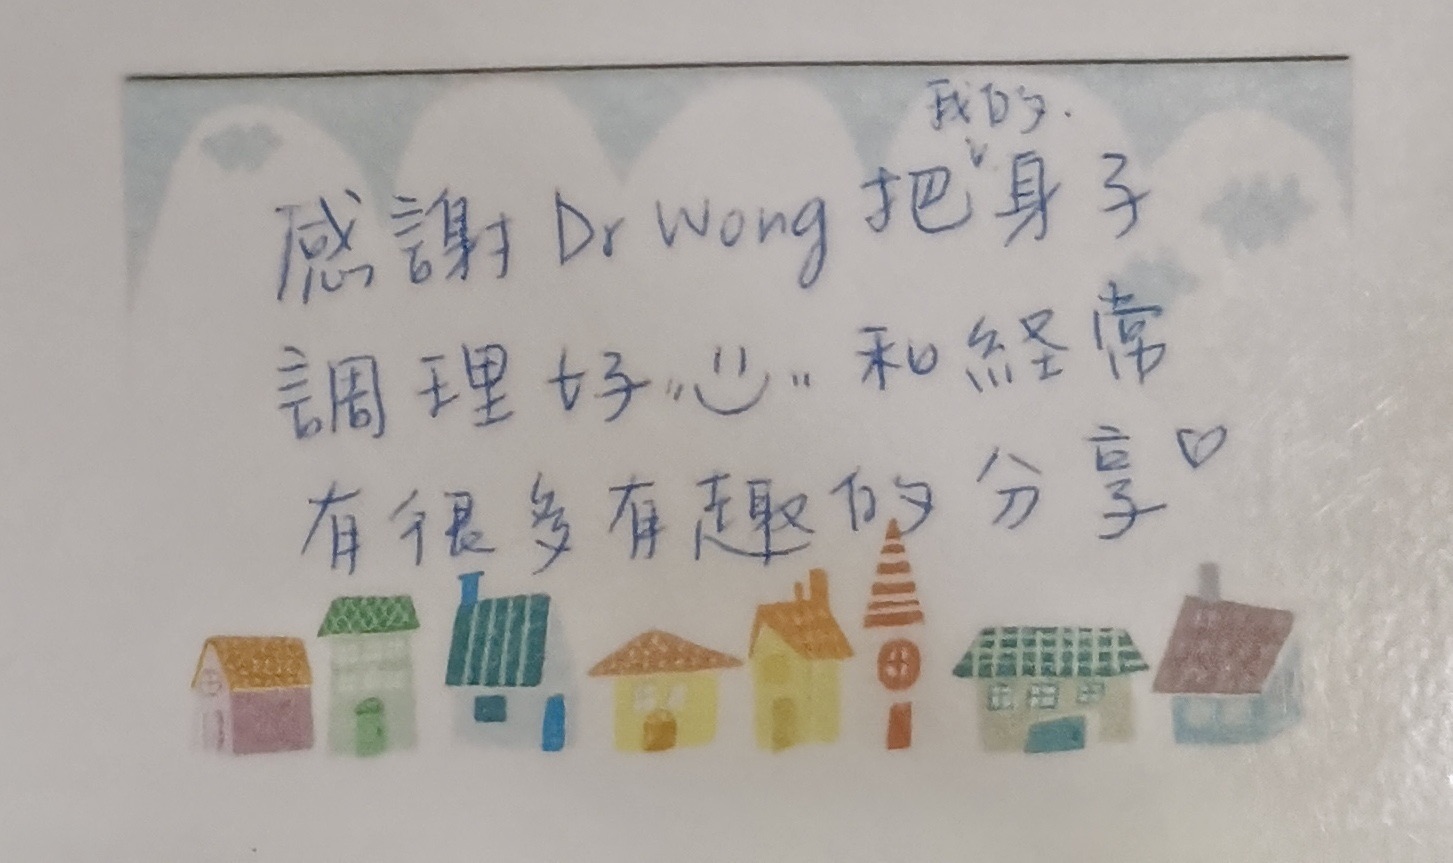 我的.
感謝 Dr Wong 把身子
調理好 和経常
有很多有趣的分享♡